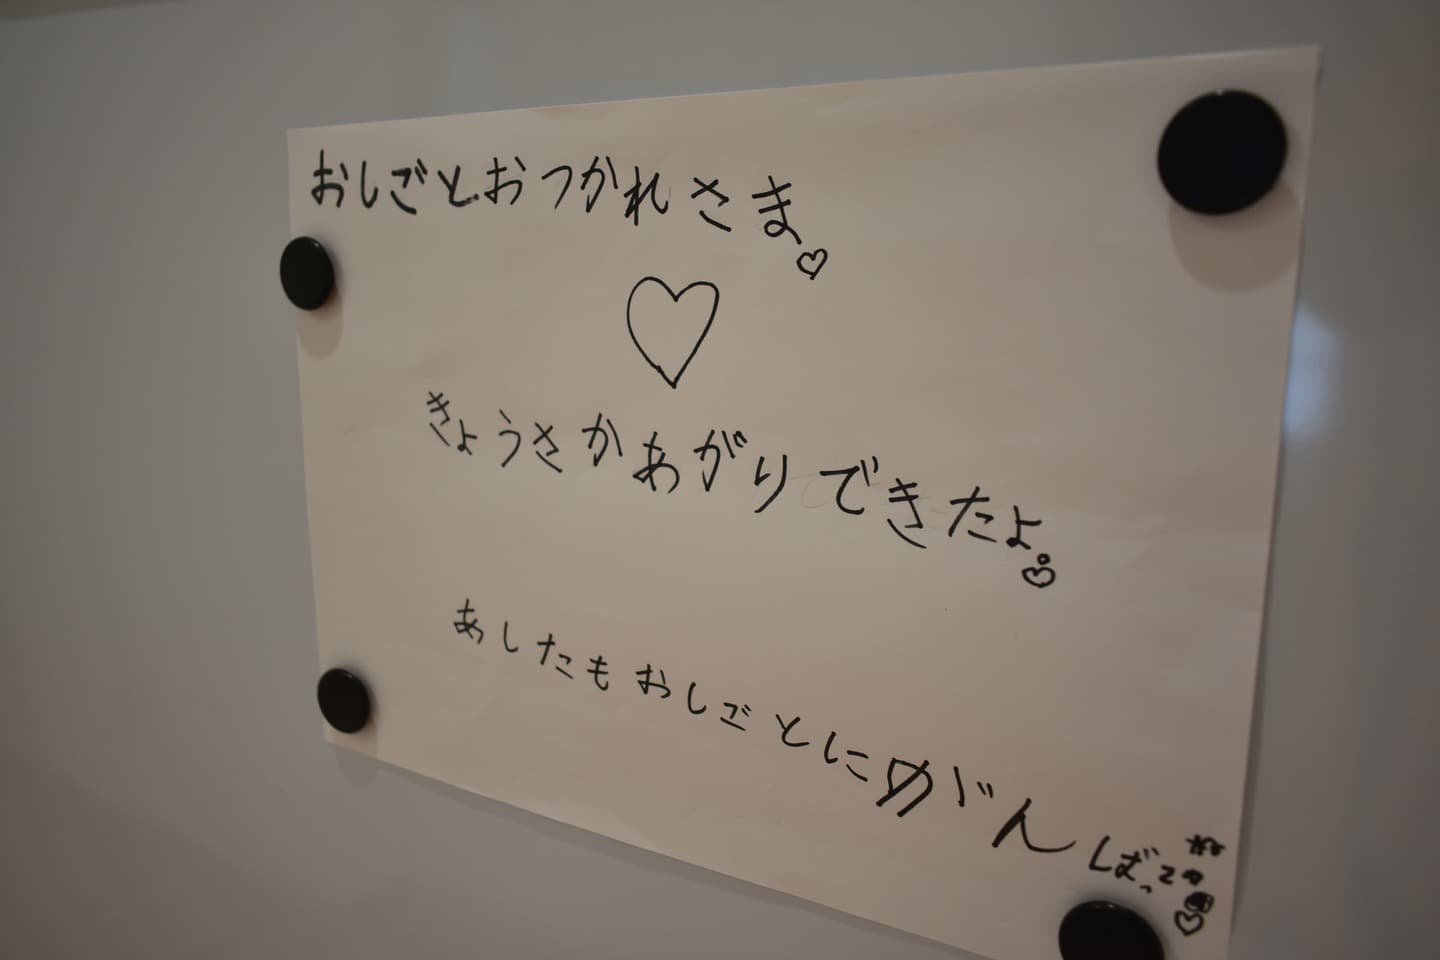 おしごとおつかれさま。
きょうさかあがりできたよ。
あしたもおしごとにがんばって